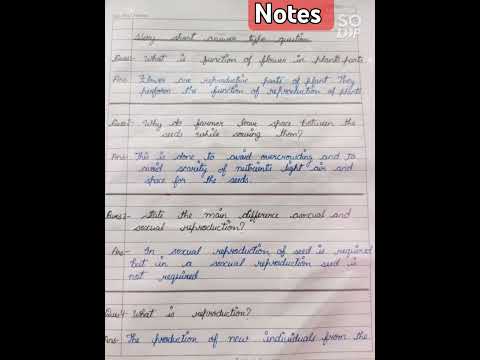 Notes
SO
Very short answer type question
Ques1- What is function of flower in plants parts
Ans:- Flower are reproductive parts of plant They
perform the function of reproduction of plants
Ques2- Why do farmer leave space between the
seeds while sowing them?
Ans- This is done to avoid overcrowding and to
avoid scarity of netrients light air and
space for the seeds.
Ques3- State the main difference asexual and
sexual reproduction?
Ans:- In sexual reproduction of seed is required
but in a sexual reproduction seed is
not required
Ques4- What is reproduction?
Ans:- The production of new individuals from the